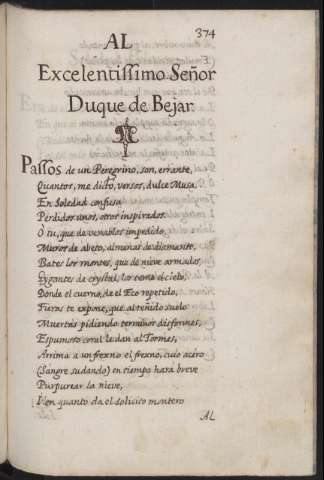 374
AL
Excelentissimo Señor
Duque de Bejar
Passos de un Peregrino, son, errante,
Quantos, me dictò, versos, dulce Musa,
En Soledad confusa
Perdidos unos, otros inspirados.
O tu, que de venablos impedido,
Muros de abeto, almenas de diamante,
Bates los montes, que de nieve armados,
Gigantes de crystal, los teme el cielo,
Donde el cuerno, de el Eco repetido,
Fieras te expone, que al teñido suelo
Muertas pidiendo terminos disformes,
Espumoso coral le dan al Tormes,
Arrima a un frexno el frexno, cuio acero
(Sangre sudando) en tiempo harà breve
Purpurear la nieve,
I en quanto da el solicito montero
AL